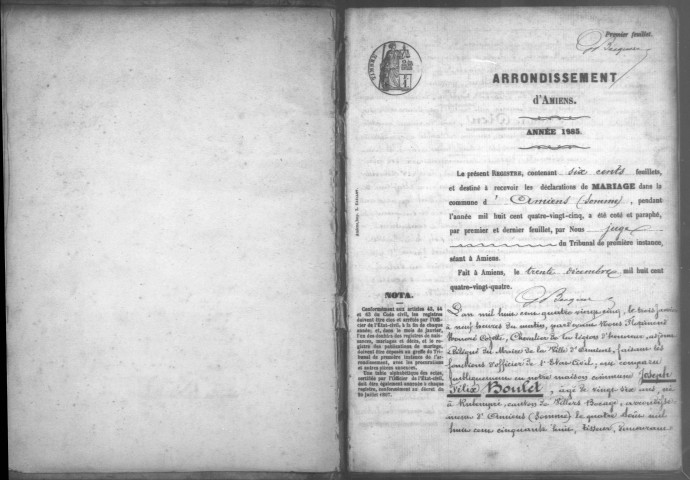 Premier feuillet.
TIMBRE
ARRONDISSEMENT
d'AMIENS.
ANNÉE 1885.
Le présent REGISTRE, contenant six cents feuillets,
et destiné à recevoir les déclarations de MARIAGE dans la
commune d' Amiens (Somme), pendant
l'année mil huit cent quatre-vingt-cinq, a été coté et paraphé,
par premier et dernier feuillet, par Nous juge
du Tribunal de première instance,
séant à Amiens.
Fait à Amiens, le trente décembre, mil huit cent
quatre-vingt-quatre.
NOTA.
Conformément aux articles 40, 44
et 63 du Code civil, les registres
doivent être clos et arrêtés par l'Offi-
cier de l'Etat-civil, à la fin de chaque
année, et, dans le mois de Janvier,
l'un des doubles des registres de nais-
sances, mariages et décès, et le re-
gistre des publications de mariage,
doivent être déposés au greffe du Tri-
bunal de première instance de l'ar-
rondissement, avec les procurations
et autres pièces annexées.
Une table alphabétique des actes,
certifiée par l'Officier de l'Etat-civil,
doit être également annexée à chaque
registre, conformément au décret du
20 juillet 1807.
L'an mil huit cent quatre vingt cinq, le trois
à neuf heures du matin, par devant Nous
Chevalier de la Légion d'honneur, adjoint
délégué du Maire de la Ville d'Amiens, faisant les
fonctions d'officier de l'Etat-Civil, ont comparu
publiquement en notre maison commune Joseph
Félix Boulet, âgé de vingt six ans, né
à Rubempré, canton de Villers Bocage, arrondisse-
ment d'Amiens (Somme) le quatre Juin mil
huit cent cinquante huit, tisseur, demeurant